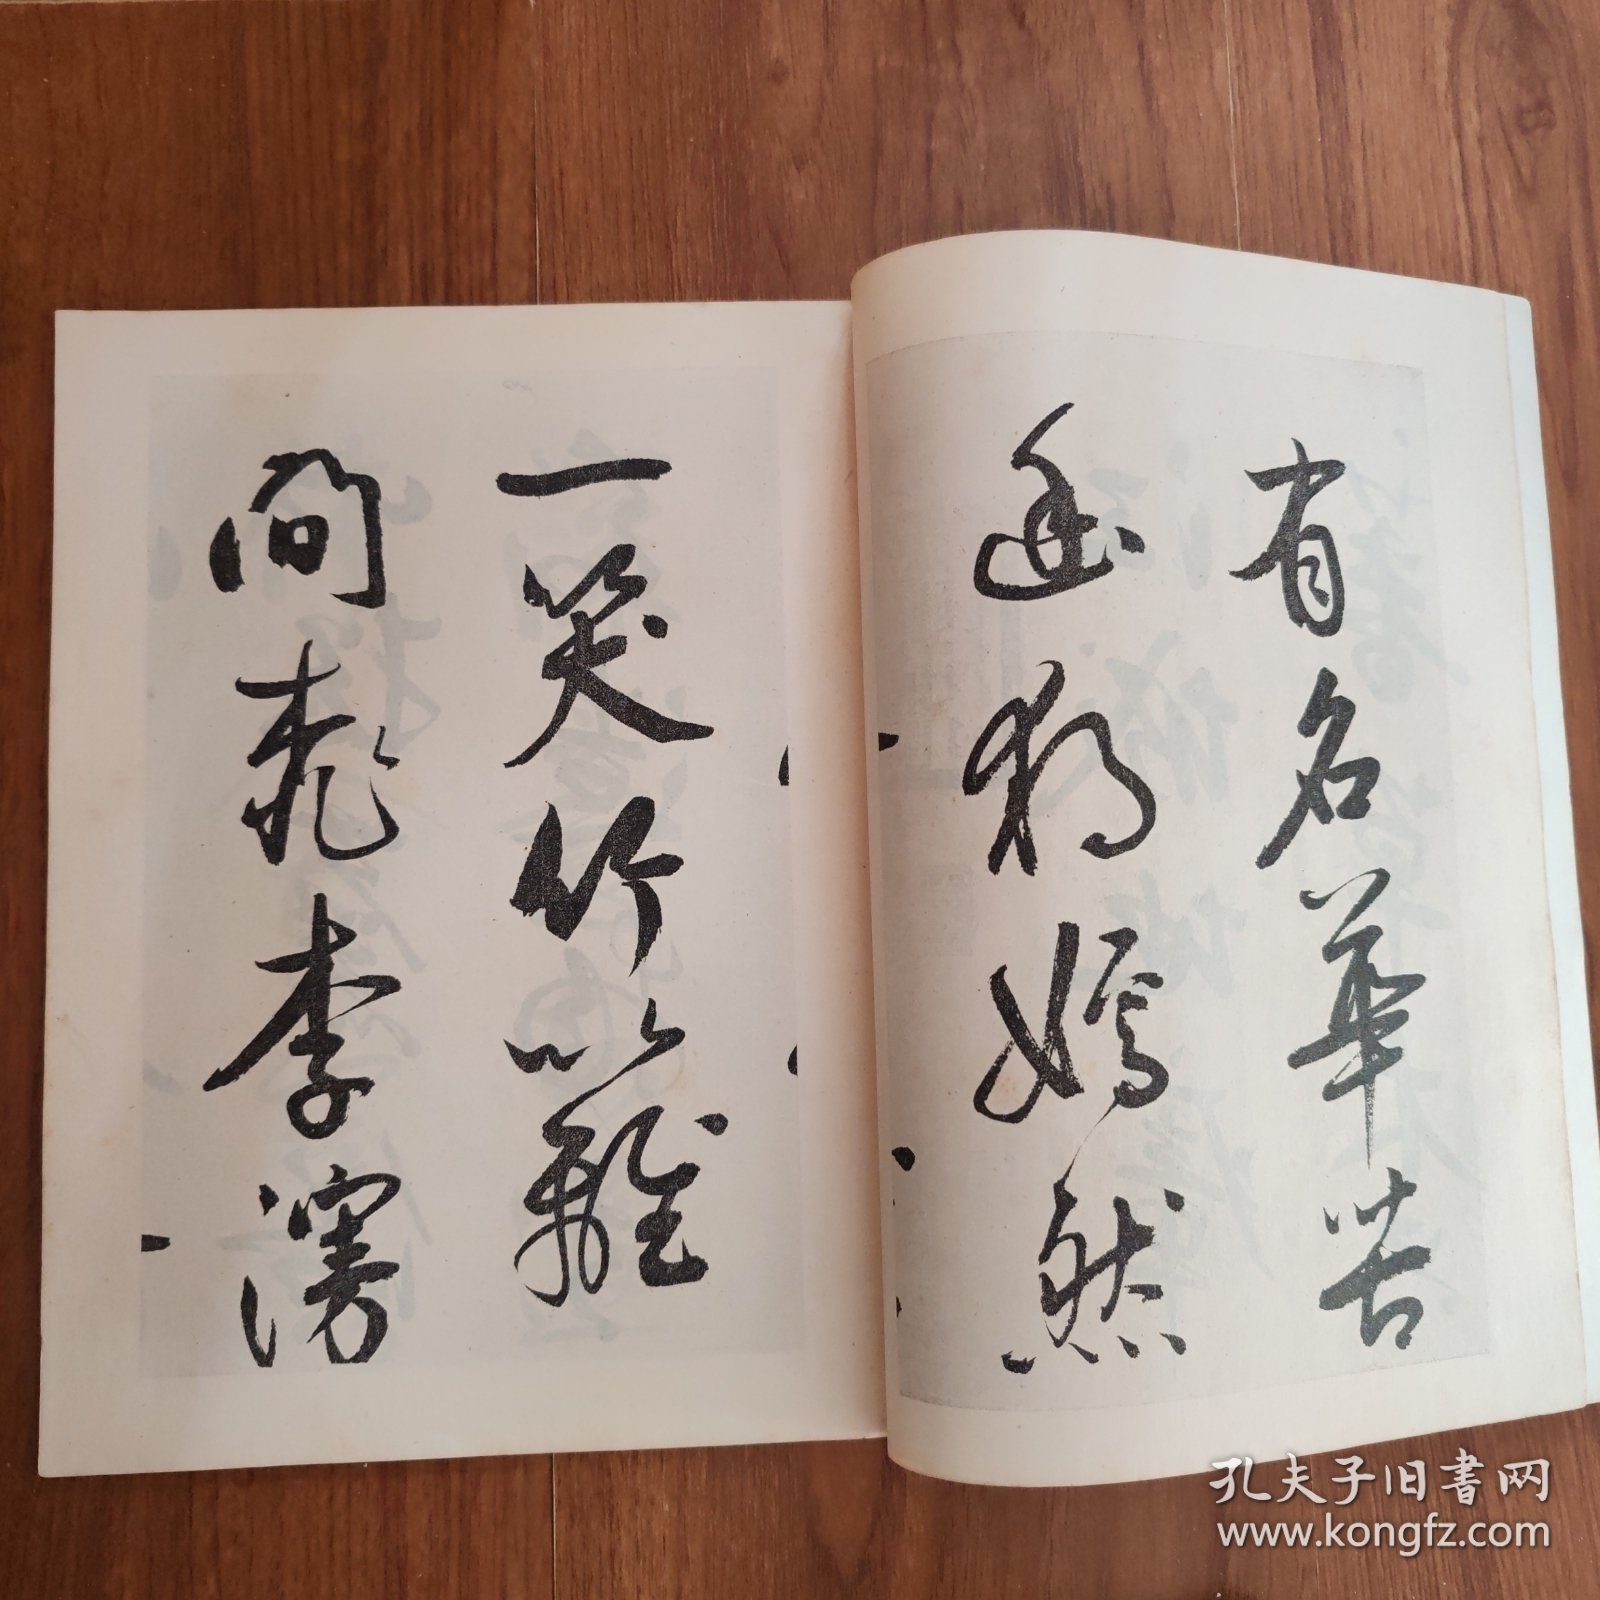 有名華苦
幽獨嫣然
一笑竹籬
間桃李漫
孔夫子旧书网
www.kongfz.com